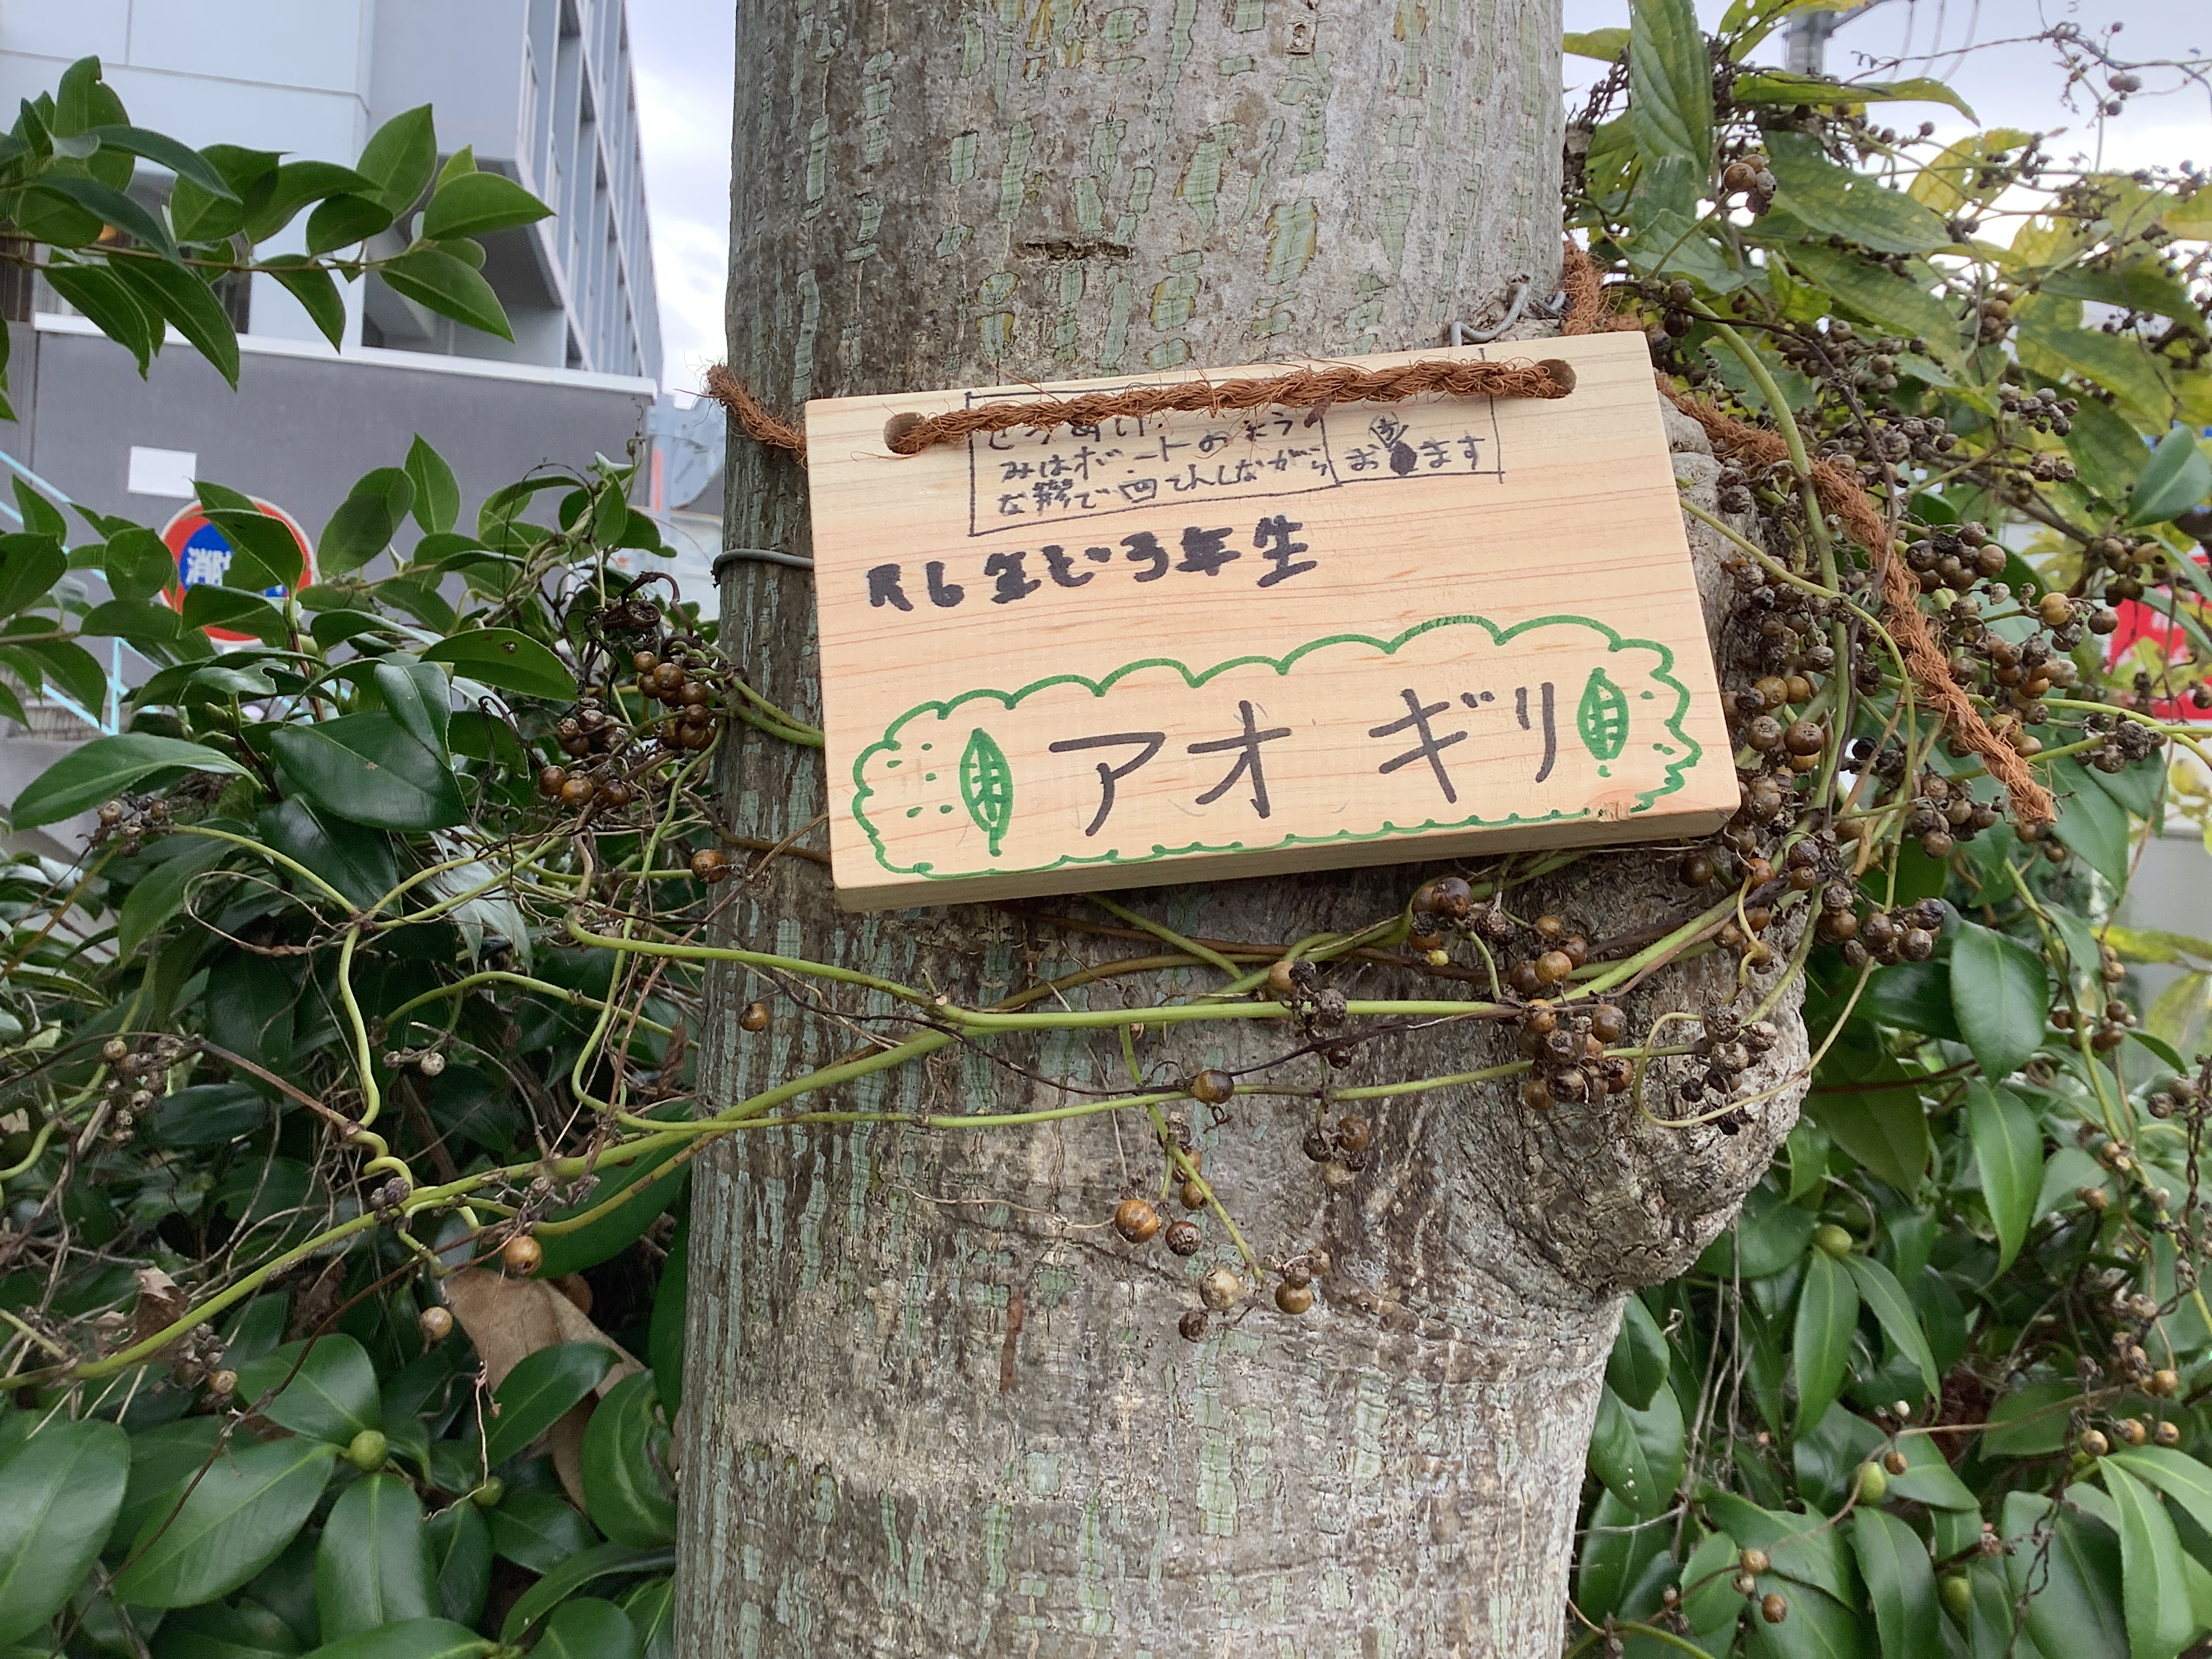 みはボートのような
形で回てんしながら
おちます
R6年ど3年生
アオギリ
消防